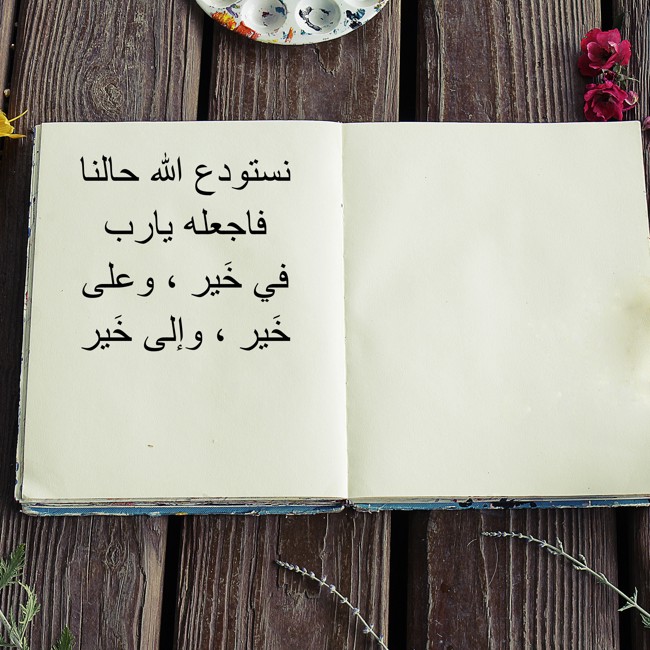 نستودع الله حالنا
فاجعله يارب
في خَير ، وعلى
خَير ، وإلى خَير